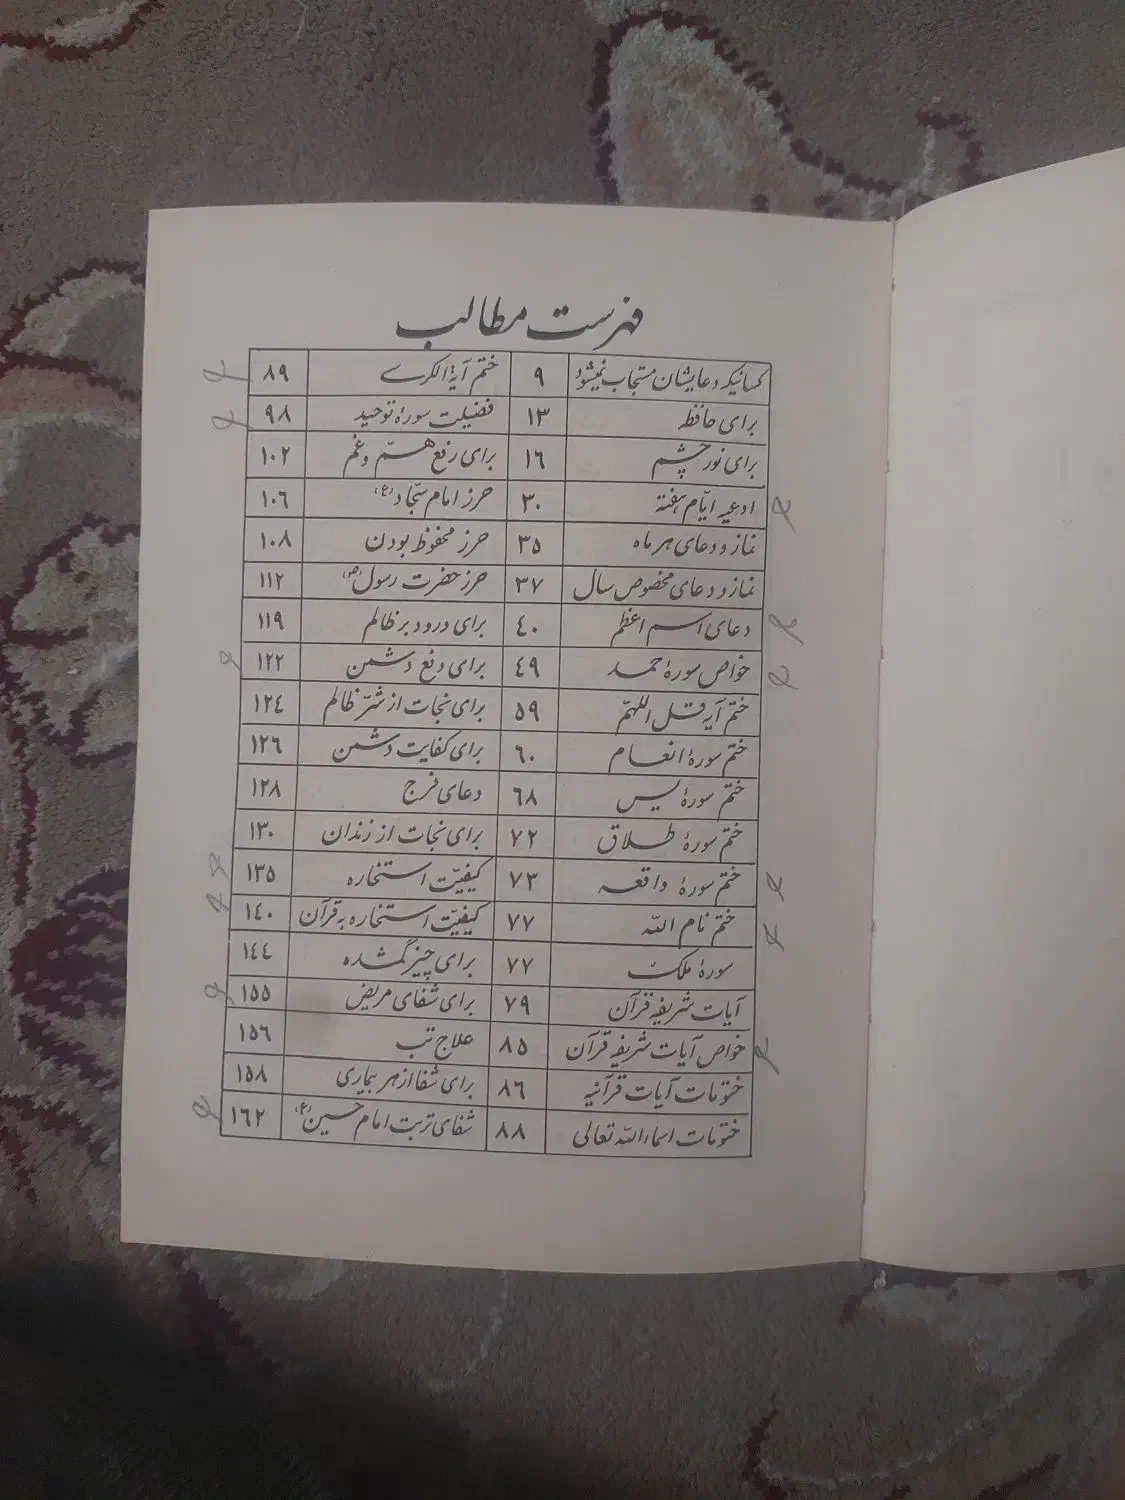 فهرست مطالب
کسانیکه دعایشان مستجاب نمیشود ۹ ختم آیة الکرسے ۸۹
برای حافظه ۱۳ فضیلت سورهٔ توحید ۹۸
برای نور چشم ۱٦ برای رفع همّ و غم ۱۰۲
ادعیه ایّام هفته ۳۰ حرز امام سجّاد (ع) ۱۰٦
نماز و دعای هر ماه ۳۵ حرز محفوظ بودن ۱۰۸
نماز و دعای مخصوص سال ۳۷ حرز حضرت رسول (ص) ۱۱۲
دعای اسم اعظم ٤۰ برای درود بر ظالم ۱۱۹
خواص سورهٔ حمد ٤۹ برای دفع دشمن ۱۲۲
ختم آیه قل اللهمّ ۵۹ برای نجات از شرّ ظالم ۱۲٤
ختم سورهٔ انعام ٦۰ برای کفایت دشمن ۱۲٦
ختم سورهٔ یس ٦۸ دعای فرج ۱۲۸
ختم سورهٔ طلاق ۷۲ برای نجات از زندان ۱۳۰
ختم سورهٔ واقعه ۷۳ کیفیّت استخاره ۱۳۵
ختم نام اللّه ۷۷ کیفیّت استخاره به قرآن ۱٤۰
سورهٔ ملک ۷۷ برای چیز گمشده ۱٤٤
آیات شریفه قرآن ۷۹ برای شفای مریض ۱۵۵
خواص آیات شریفه قرآن ۸۵ علاج تب ۱۵٦
ختومات آیات قرآنیه ۸٦ برای شفا از هر بیماری ۱۵۸
ختومات اسماء اللّه تعالی ۸۸ شفای تربت امام حسین (ع) ۱٦۲